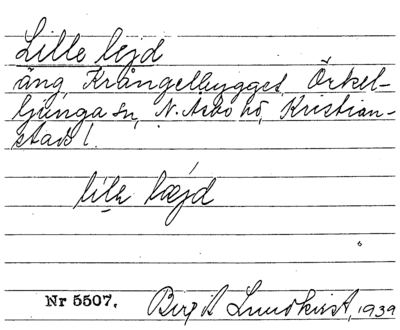 Lille lejd
äng, Krångelbygget, Örkel-
ljunga sn, N. Åsbo hd, Kristian-
stads l.
lilə læjd
Nr 5507. Birgit Lundkvist, 1939